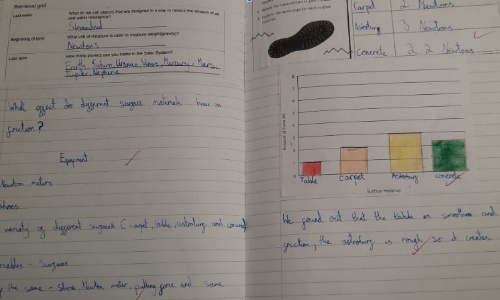 Retrieval grid
Last week
What do we call objects that are designed in a way to reduce the amount of air and water resistance?
Streamlined
Beginning of term
What unit of measure is used to measure weight/gravity?
Newtons
Last term
How many planets can you name in the Solar System?
Earth, Saturn, Uranus, Venus, Mercury, Mars,
Jupiter, Neptune
What effect do different surface materials have on
friction?
Equipment
Newton meters
variety of different surfaces (carpet, table, astroturf and concrete
- Surfaces
the same - Shoe, Newton meter, pulling force and same
Carpet 2 Newtons
Astroturf 3 Newtons
Concrete 2.2 Newtons
Table Carpet Astroturf Concrete
Surface material
We found out that the table is smoother and
friction, the astroturf is rough so it creates